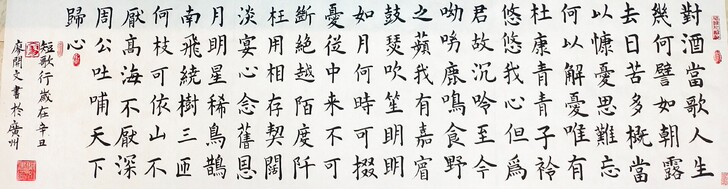 對酒當歌人生
幾何譬如朝露
去日苦多概當
以慷憂思難忘
何以解憂唯有
杜康青青子衿
悠悠我心但爲
君故沉吟至今
呦呦鹿鳴食野
之蘋我有嘉賓
鼓瑟吹笙明明
如月何時可掇
憂從中來不可
斷絕越陌度阡
枉用相存契闊
淡宴心念舊恩
月明星稀烏鵲
南飛繞樹三匝
何枝可依山不
厭高海不厭深
周公吐哺天下
歸心
短歌行歲在辛丑
廖開文書於廣州